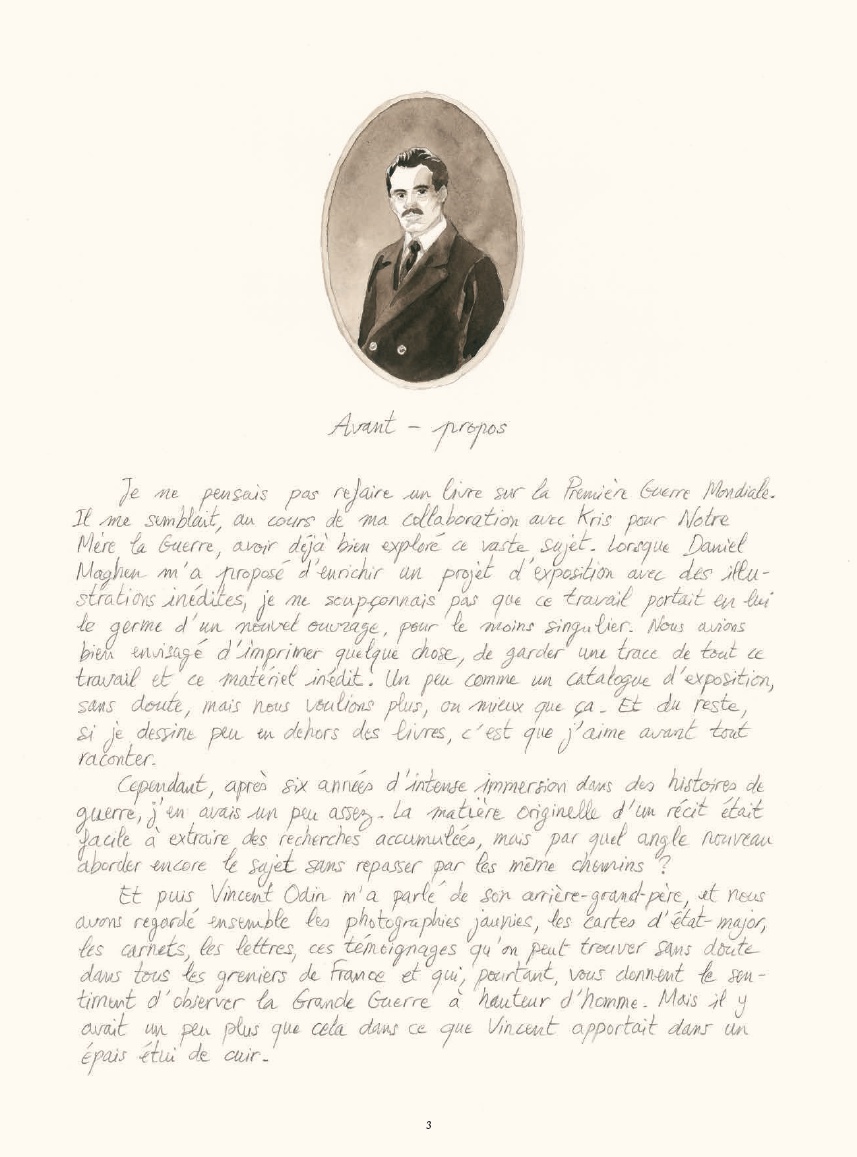 Avant - propos
Je ne pensais pas refaire un livre sur la Première Guerre Mondiale.
Il me semblait, au cours de ma collaboration avec Kris pour Notre
Mère la Guerre, avoir déjà bien exploré ce vaste sujet. Lorsque Daniel
Maghen m'a proposé d'enrichir un projet d'exposition avec des illu-
strations inédites, je ne soupçonnais pas que ce travail portait en lui
le germe d'un nouvel ouvrage, pour le moins singulier. Nous avions
bien envisagé d'imprimer quelque chose, de garder une trace de tout ce
travail et ce matériel inédit. Un peu comme un catalogue d'exposition,
sans doute, mais nous voulions plus, ou mieux que ça. Et du reste,
si je dessine peu en dehors des livres, c'est que j'aime avant tout
raconter.
Cependant, après six années d'intense immersion dans des histoires de
guerre, j'en avais un peu assez. La matière originelle d'un récit était
facile à extraire des recherches accumulées, mais par quel angle nouveau
aborder encore le sujet sans repasser par les même chemins ?
Et puis Vincent Odin m'a parlé de son arrière-grand-père, et nous
avons regardé ensemble les photographies jaunies, les cartes d'état-major,
les carnets, les lettres, ces témoignages qu'on peut trouver sans doute
dans tous les greniers de France et qui, pourtant, vous donnent le sen-
timent d'observer la Grande Guerre à hauteur d'homme. Mais il y
avait un peu plus que cela dans ce que Vincent apportait dans un
épais étui de cuir.
3